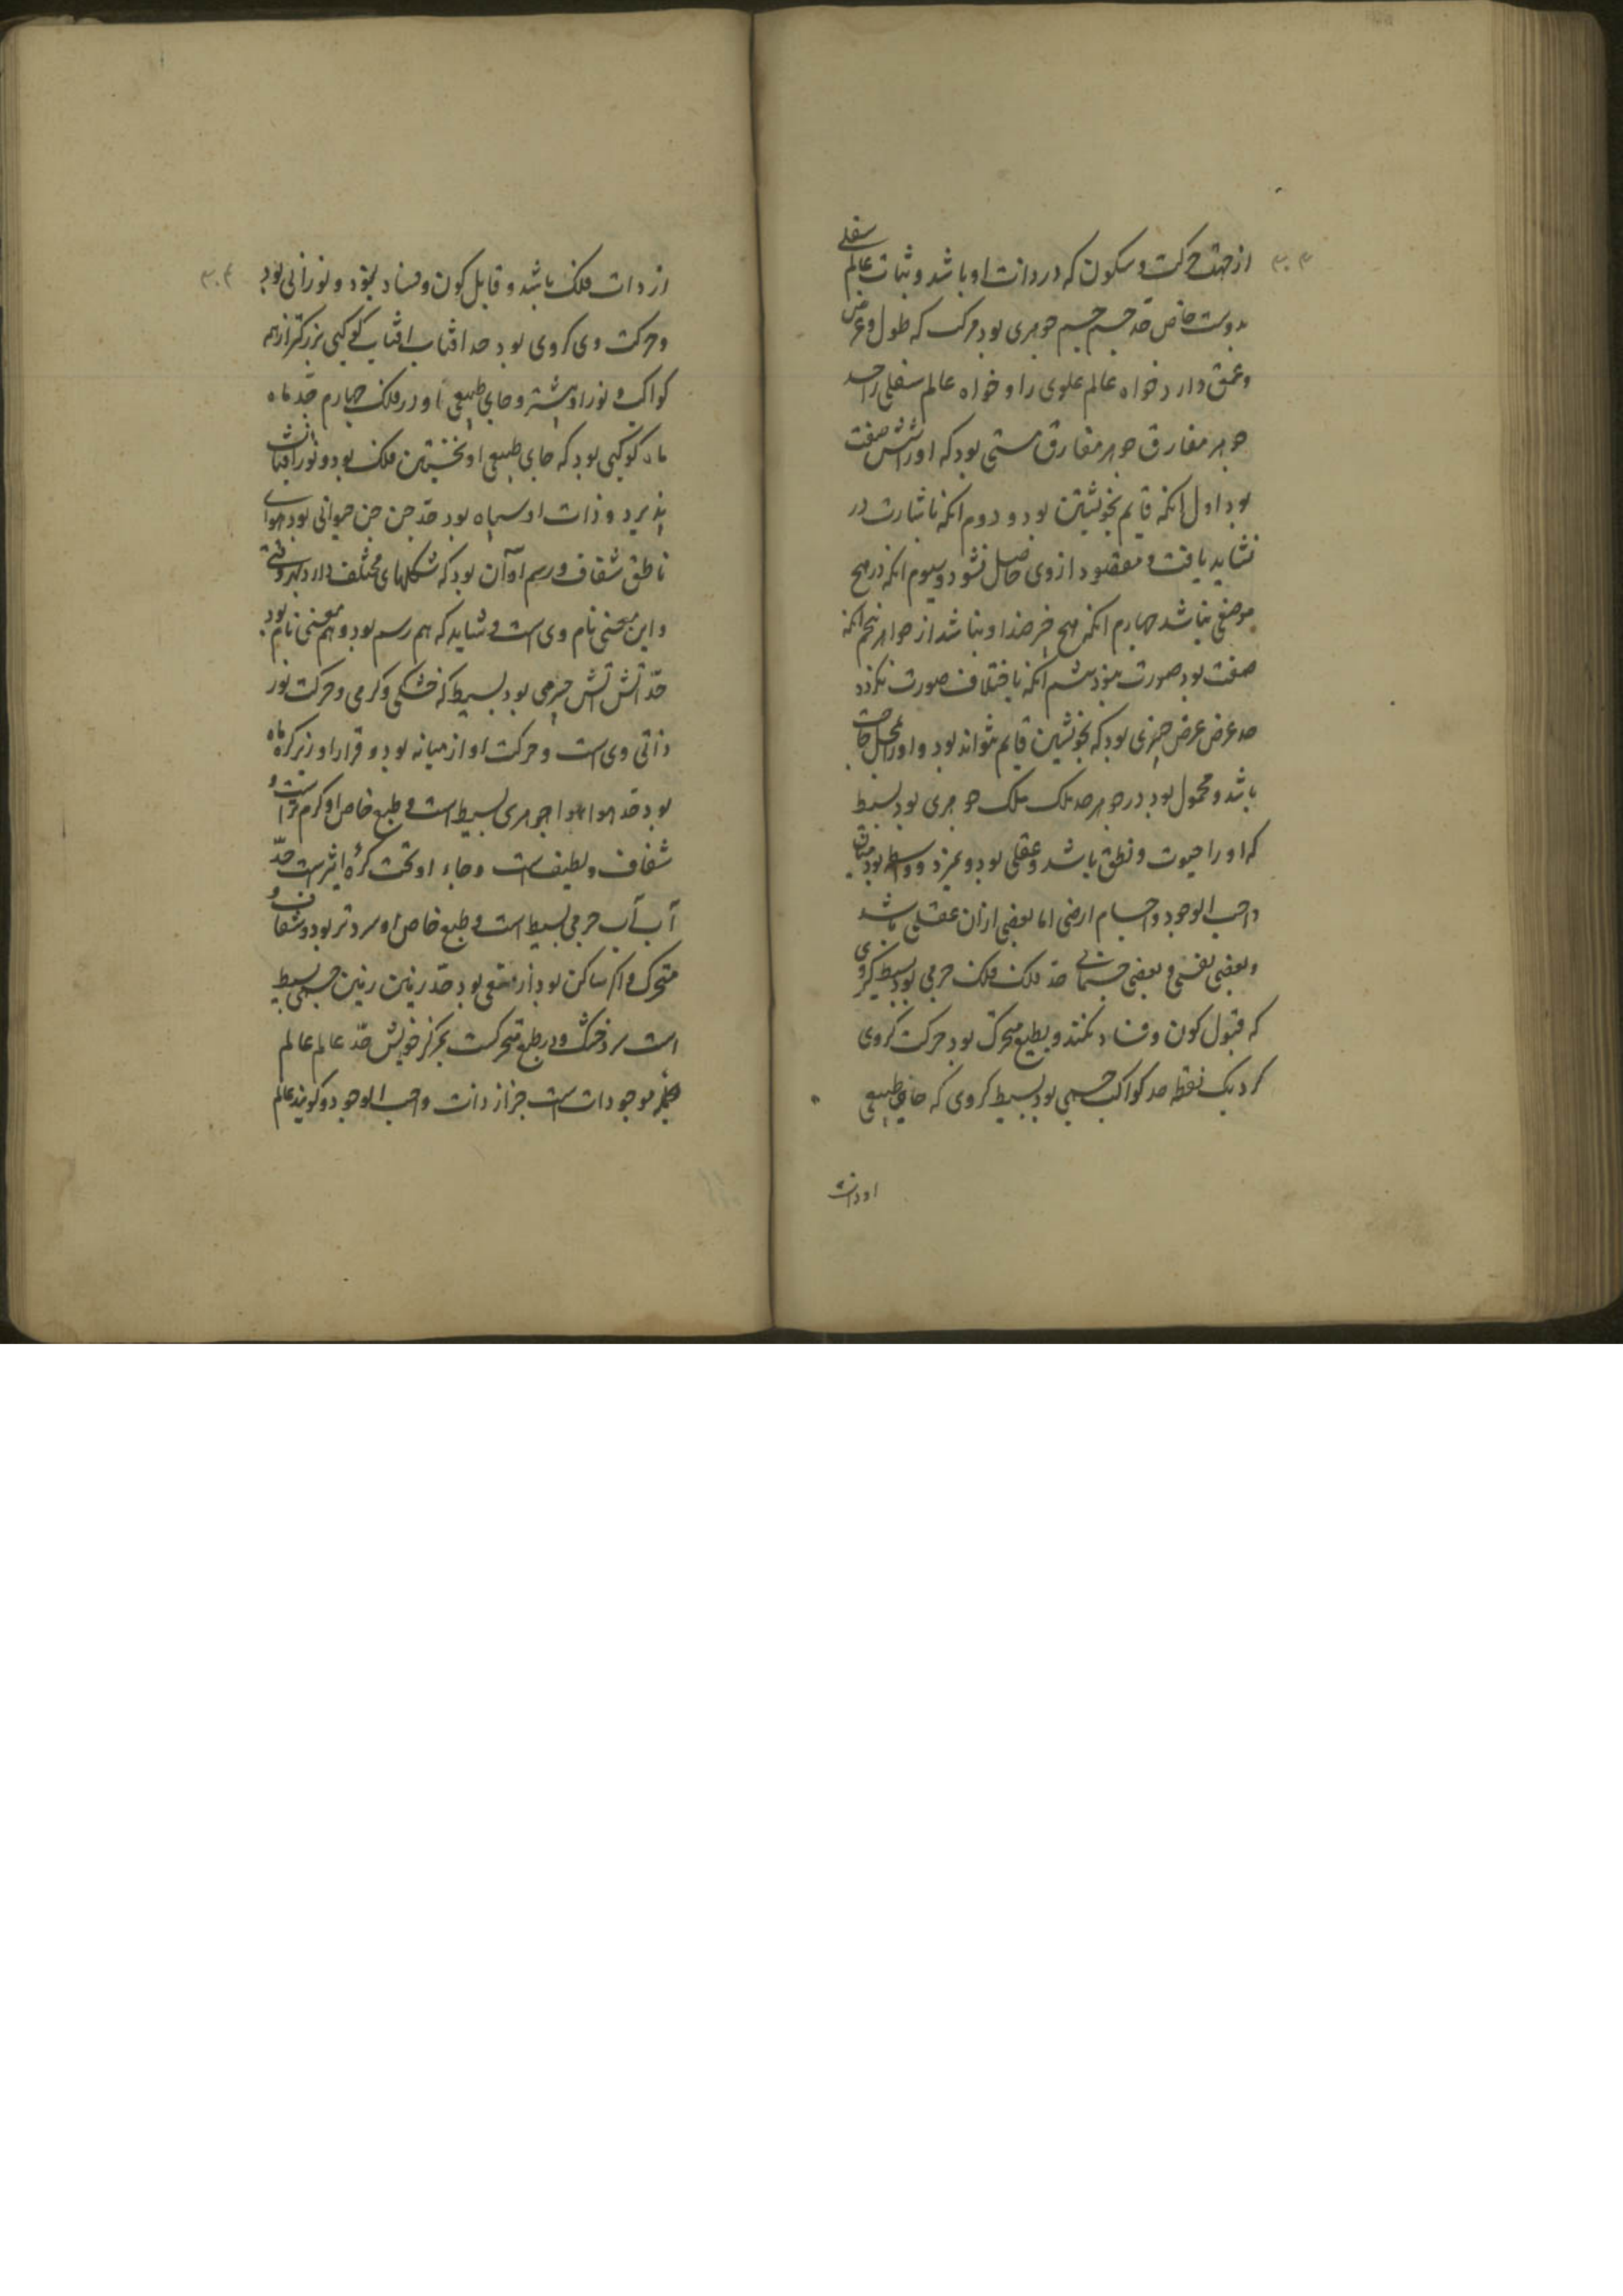 ۳۰۳
از جهت حرکت و سکون که در ذات او باشد و ثبات عالم سفلی
بدوست خاص حد جسم جسم جوهری بود مرکب که طول و عرض
و عمق دارد خواه عالم علوی را و خواه عالم سفلی را حد
جوهر مفارق جوهر مفارق هستی بود که او را شش صفت
بود اول انکه قایم بخویشتن بود و دوم انکه باشارت در
نشاید یافت و مقصود از وی حاصل نشود و سیوم انکه در هیچ
موضعی نباشد چهارم انکه هیچ خیر ضد او نباشد از جواهر پنجم انکه
صفت بود صورت ششم انکه باختلاف صورت نکردد
حد عرض عرض چیزی بود که بخویشتن قایم نتواند بود و او را بمحل حاجت
باشد و محمول بود در جوهر حد ملک ملک جوهری بود بسیط
که او را حیوت و نطق باشد و عقلی بود و نمیرد و واسطه بود میان
واجب الوجود و اجسام ارضی اما بعضی ازان عقلی باشد
و بعضی نفسی و بعضی جسمانی حد فلک فلک جرمی بود بسیط کروی
که قبول کون و فساد نکند و بطبع متحرک بود حرکت کروی
کرد یک نقطه حد کواکب جسمی بود بسیط کروی که جای طبیعی
او ذات
۳۰۴
از ذات فلک باشد و قابل کون و فساد نبود و نورانی بود
و حرکت وی کروی بود حد افتاب افتاب کوکبی بزرکتر از همه
کواکب و نور او بیشتر و جای طبیعی او در فلک چهارم حد ماه
ماه کوکبی بود که جای طبیعی او نخستین فلک بود و نور از افتاب
پذیرد و ذات او سیاه بود حد جن جن حیوانی بود هوای
ناطق شفاف و رسم او آن بود که شکلهای مختلف دارد بهر وقتی
و این معنی نام وی است و شاید که هم رسم بود و هم معنی نام بود
حد آتش آتش جرمی بود بسیط که خشکی و کرمی و حرکت نور
ذاتی وی است و حرکت او از میانه بود و قرار او زیر کره ماه
بود حد هوا هوا جوهری بسیط است و طبع خاص او کرم تر است و
شفاف و لطیف است و جاء او تحت کرهٔ اثیر است حد
آب آب جرمی بسیط است و طبع خاص او سرد تر بود و شفاف و
متحرک و اکر ساکن بود از بود حد زمین زمین جسمی بسیط
است سرد خشک و در طبع متحرکست بمرکز خویش حد عالم عالم
جمله موجودات است جز از ذات واجب الوجود و کویند عالم